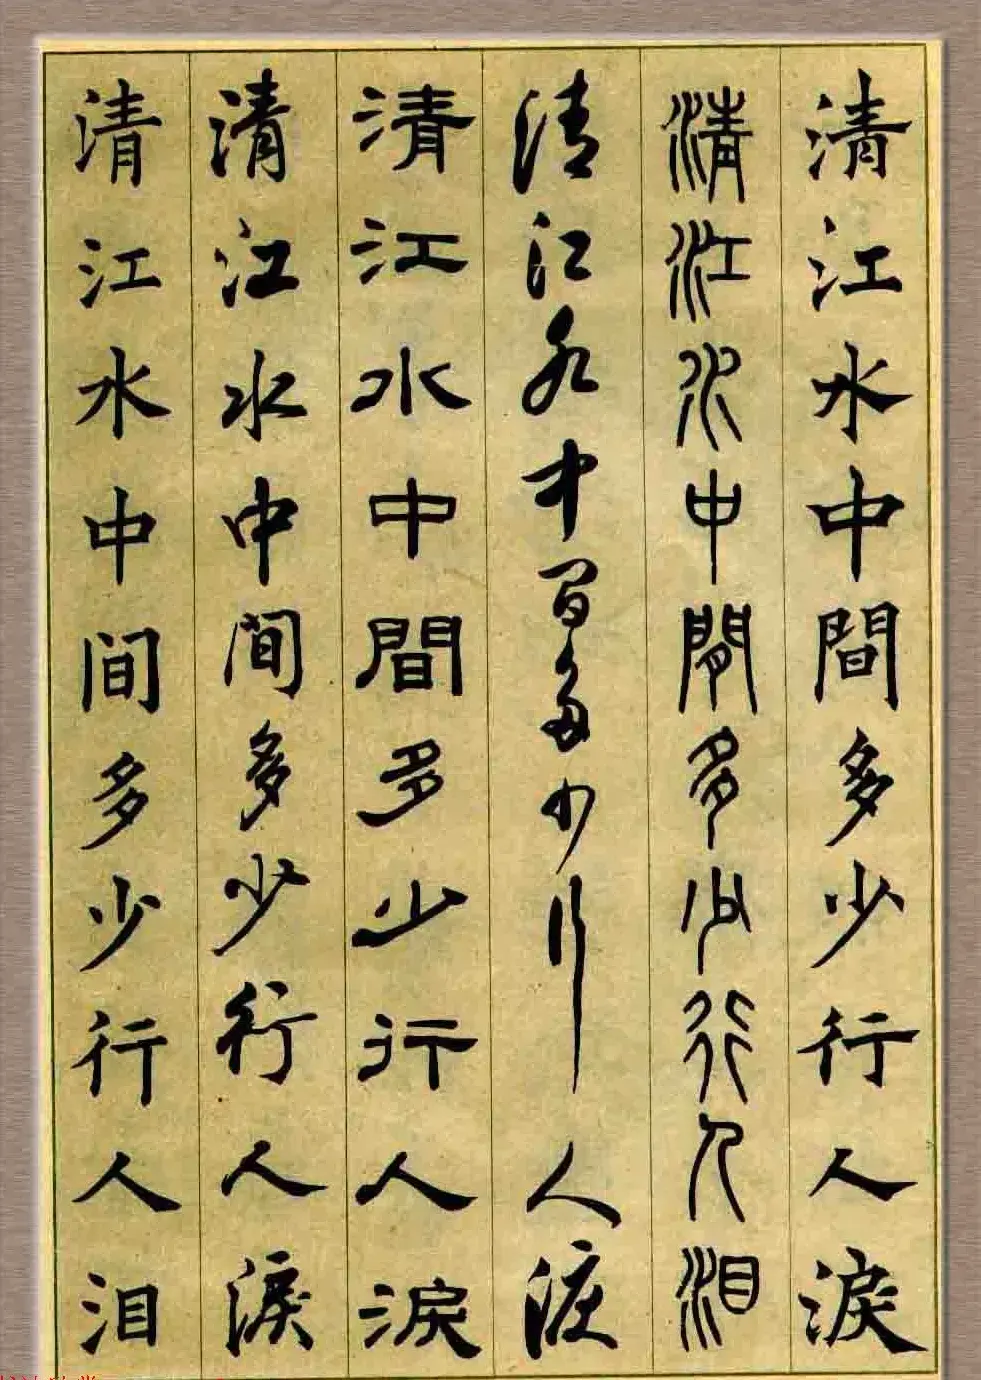 清江水中間多少行人淚
清江水中閒多少行人泪
清江水中间多少行人淚
清江水中間多少行人淚
清江水中间多少行人淚
清江水中间多少行人泪